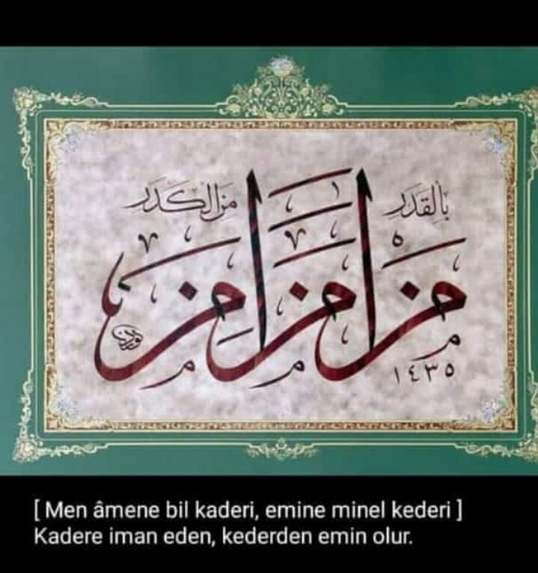 بالقدر من الكدر
من امن امن
١٤٣٥
[ Men âmene bil kaderi, emine minel kederi ]
Kadere iman eden, kederden emin olur.